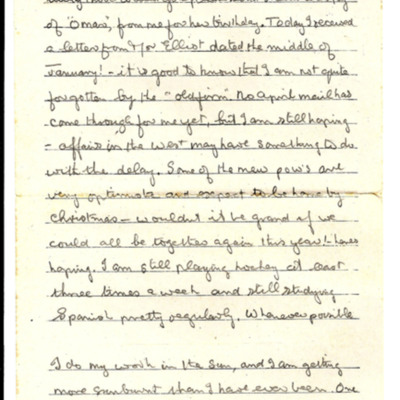 of 'Omar', from me for her birthday. Today I received
a letter from Mr Elliot dated the middle of
January! - it is good to know that I am not quite
forgotten by the "old firm". No April mail has
come through for me yet, but I am still hoping
- affairs in the west may have something to do
with the delay. Some of the new pow's are
very optimistic and expect to be home by
Christmas - wouldn't it be grand if we
could all be together again this year! - heres
hoping. I am still playing hockey at least
three times a week and still studying
Spanish pretty regularly. Whenever possible
I do my work in the sun, and I am getting
more sunburnt than I have ever been. One